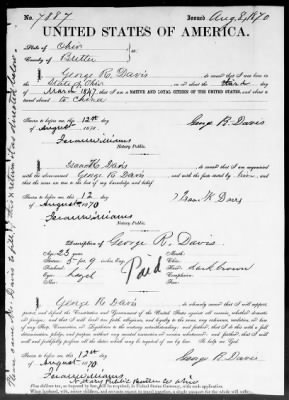 No. 7887 Issued Aug 8, 1870
UNITED STATES OF AMERICA.
State of Ohio
County of Butler ss:
I George R. Davis do swear that I was born in
the State of Ohio on the
March 1847, that I am a NATIVE AND LOYAL CITIZEN OF THE UNITED STATES, and about to
travel abroad to China
Sworn to before me, this 12th day
of August 1870
George R. Davis
Notary Public.
I Isaac H. Davis do swear that I am acquainted
with the above-named George R. Davis and with the facts stated by him, and
that the same are true to the best of my knowledge and belief.
Sworn to before me, this 12 day
of August 1870
Isaac H. Davis
Notary Public.
Description of George R. Davis.
Age: 23 years
Stature: 5 ft 9
Eyes: hazel
Hair: dark brown
Paid
I George R. Davis do solemnly swear that I will support,
protect, and defend the Constitution and Government of the United States against all enemies, whether domestic
or foreign; and that I will bear true faith, allegiance, and loyalty to the same, any ordinance, resolution, or law
of any State, Convention, or Legislature to the contrary notwithstanding; and further, that I do this with a full
determination, pledge, and purpose, without any mental reservation or evasion whatsoever; and further, that I
will well and faithfully perform all the duties which may be required of me by law: So help me God.
Sworn to before me, this 12th day
of August 1870
George R. Davis
Notary Public Butler Co Ohio